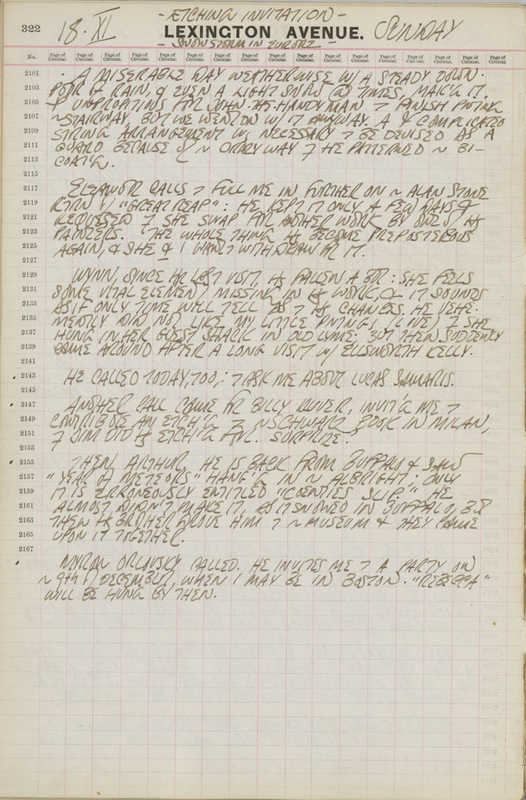 - ETCHING INVITATION -
322 18. XI LEXINGTON AVENUE. SUNDAY
- SNOWSTORM IN
No. Page of Circular. Page of Circular. Page of Circular. Page of Circular. Page of Circular. Page of Circular. Page of Circular. Page of Circular. Page of Circular. Page of Circular. Page of Circular. Page of Circular. Page of Circular. Page of Circular. Page of Circular. Page of Circular. Page of Circular.
2101 A MISERABLE DAY WEATHERWISE W/ A STEADY DOWN-
2103 POUR OF RAIN, & EVEN A LIGHT SNOW @ TIMES, MAK'G IT
2105 UNPROPITIOUS FOR JOHN-THE-HANDYMAN FINISH
2107 ~ STAIRWAY. BUT WE WENT ON W/ IT ANYWAY. A COMPLICATED
2109 STRING ARRANGEMENT NECESSARY BE DEVISED AS A
2111 GUARD BECAUSE OF ~ WAY HE PATTERNED ~ BI-
2113 COATING.
2115
2117 ELEANOR CALLS FILL ME IN FURTHER ON ~ ALAN STONE
2119 RETURN OF "GREAT REAP": HE KEPT IT ONLY A FEW DAYS &
2121 REQUESTED SHE SWAP FOR ANOTHER WORK BY ONE OF
2123 PAINTERS. THE WHOLE THING BECOME PREPOSTEROUS
2125 AGAIN, & SHE & I WANT WITHDRAW FR IT.
2127
2129 WYNN, SINCE HR LAST VISIT, FALLEN A BIT: SHE FEELS
2131 SOME VITAL ELEMENT MISSING IN WORK, & IT SOUNDS
2133 AS IF ONLY TIME WILL TELL AS CHANGES. HE VEHE-
2135 MENTLY DID NOT LIKE MY LITTLE "LOVE," SHE
2137 HUNG IN HER GUEST SHACK IN OLD LYME: BUT THEN SUDDENLY
2139 CAME AROUND AFTER A LONG VISIT W/ ELLSWORTH KELLY.
2141
2143 HE CALLED TODAY, TOO,: ASK ME ABOUT LUCAS SAMARAS.
2145
2147 ANOTHER CALL CAME FR BILLY KLUVER, INVIT'G ME
2149 CONTRIBUTE AN ETCH'G SCHWARZ BOOK IN MILAN,
2151 ETCH'G FOR. SURPRISE!
2153
2155 THEN, ARTHUR. HE IS BACK FROM BUFFALO & SAW
2157 "YEAR OF METEORS" HANG'G IN ~ ALBRIGHT: ONLY
2159 IT IS ERRONEOUSLY ENTITLED "COENTIES SLIP." HE
2161 ALMOST DIDN'T MAKE IT, AS IT SNOWED IN BUFFALO, BUT
2163 THEN BROTHER DROVE HIM ~ MUSEUM & THEY CAME
2165 UPON IT TOGETHER.
2167
MYRON ORLOVSKY CALLED. HE INVITES ME A PARTY ON
~ 9TH OF DECEMBER, WHEN I MAY BE IN BOSTON. "REBECCA"
WILL BE HUNG BY THEN.